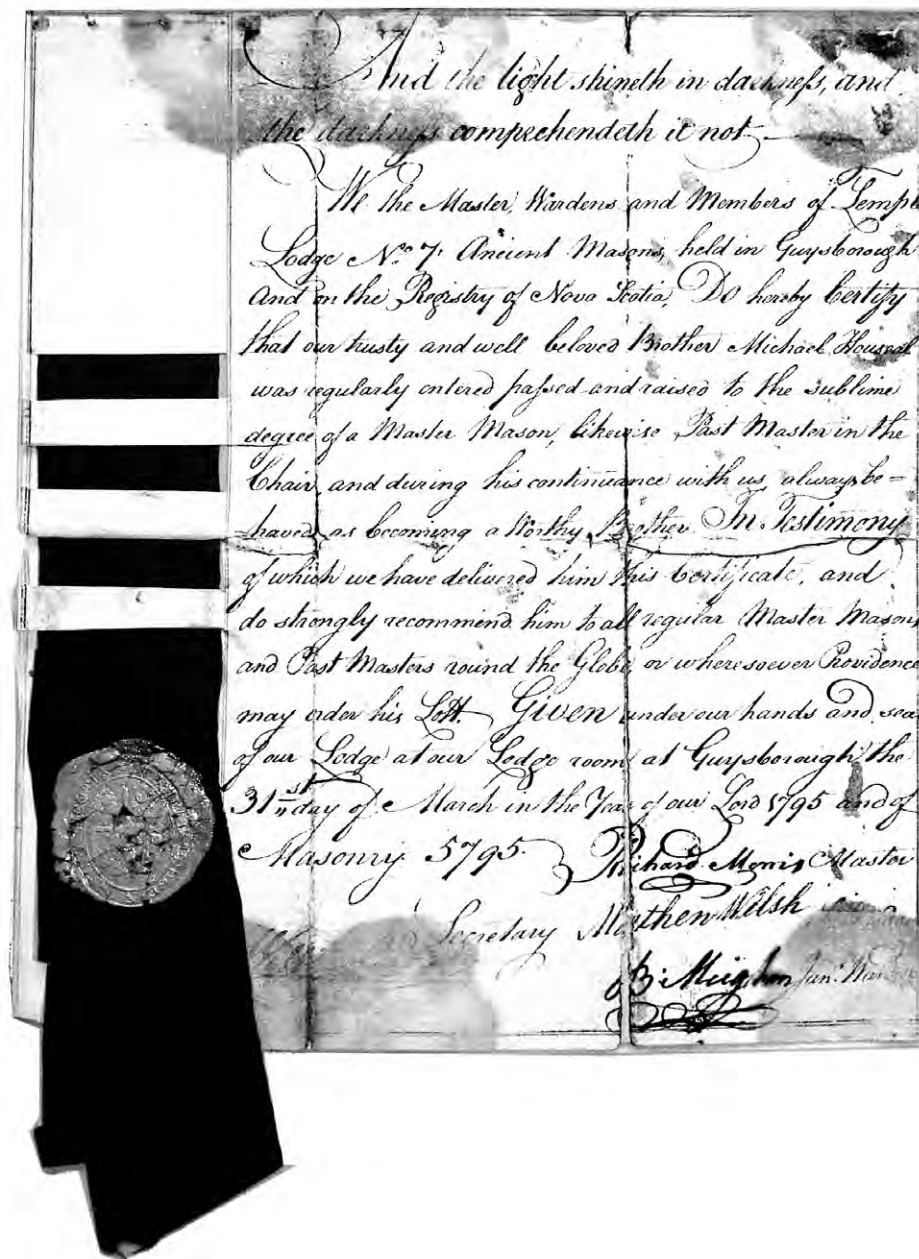 And the light shineth in darkness, and
the darkness comprehendeth it not
We the Master, Wardens and Members of Temple
Lodge No. 7, Ancient Masons, held in Guysborough
And on the Registry of Nova Scotia, Do hereby Certify
that our trusty and well beloved Brother Michael Houseal
was regularly entered passed and raised to the sublime
degree of a Master Mason, likewise Past Master in the
Chair, and during his continuance with us, always be=
haved as becoming a Worthy Brother. In Testimony
of which we have delivered him this Certificate, and
do strongly recommend him to all regular Master Masons,
and Past Masters round the Globe, or wheresoever Providence
may order his Lott. Given under our hands and sea
of our Lodge at our Lodge room at Guysborough the
31st day of March in the Year of our Lord 1795 and of
Masonry 5795. Richard Morris Master
Secretary Matthew Welsh
Jun. Warden